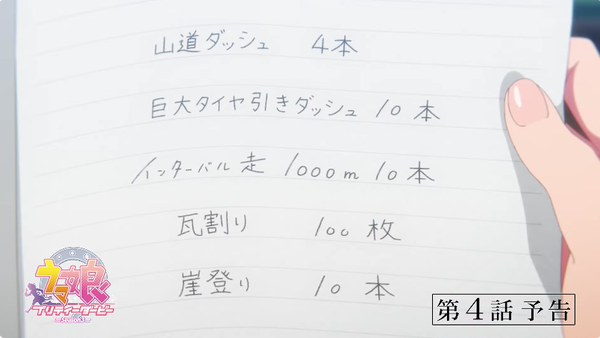 山道ダッシュ 4本
巨大タイヤ引きダッシュ 10本
インターバル走 1000m 10本
瓦割り 100枚
崖登り 10本
ウマ娘
プリティーダービー
Season3
第4話 予告